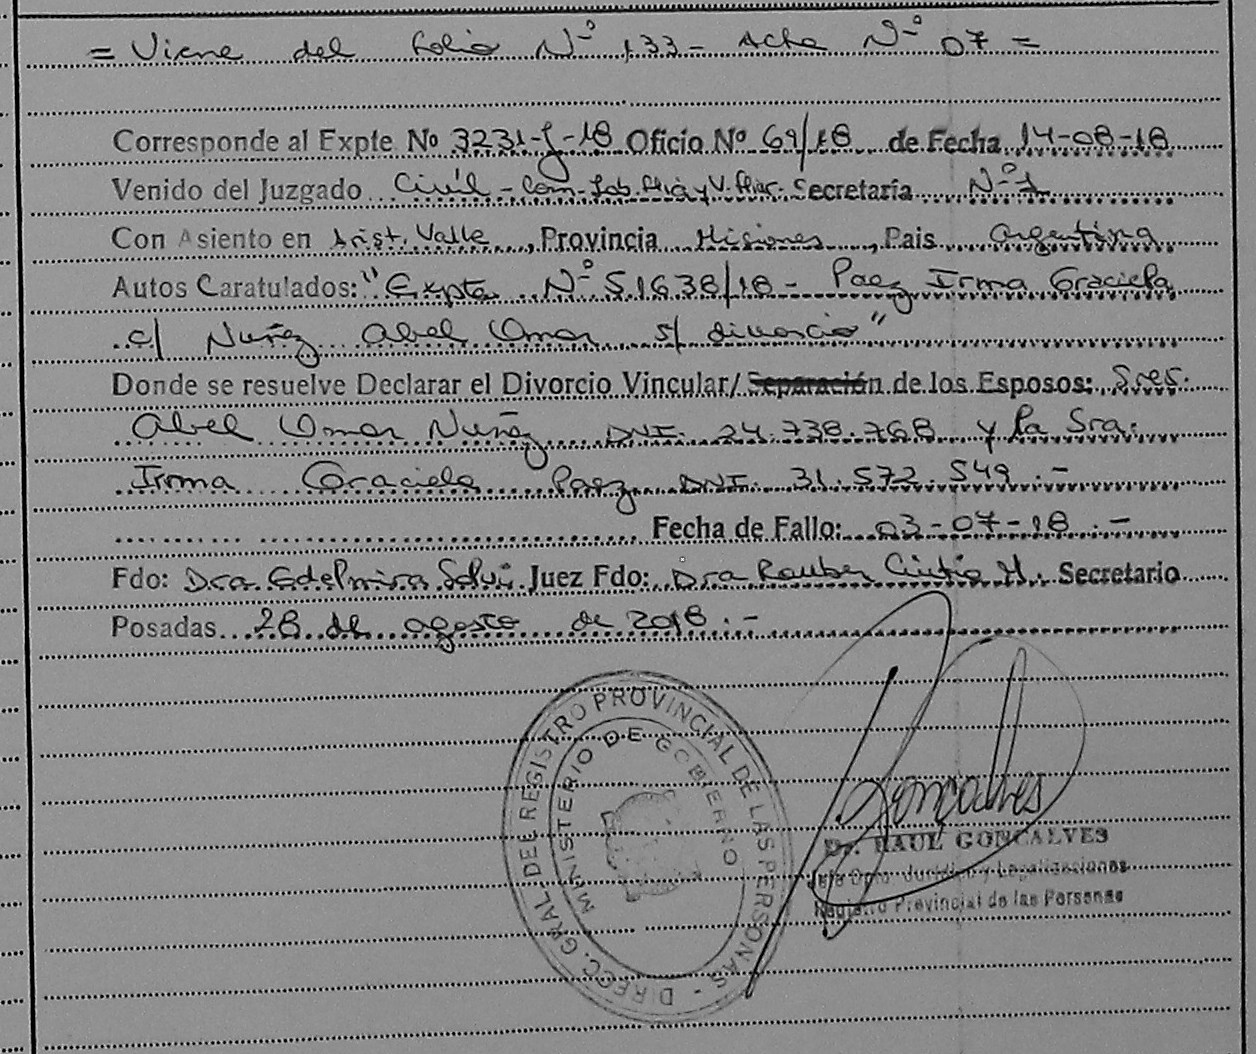 = Viene del folio Nº 133 - Acta Nº 07 =
Corresponde al Expte Nº 3231-J-18 Oficio Nº 69/18 de Fecha 14-08-18
Venido del Juzgado Civil - Com - Lab. Flia y V. Fliar. Secretaría Nº 1
Con Asiento en Arist. Valle, Provincia Misiones, Pais Argentina
Autos Caratulados: "Expte Nº 51638/18 - Paez Irma Graciela
c/ Nuñez Abel Omar s/ divorcio"
Donde se resuelve Declarar el Divorcio Vincular/Separación de los Esposos: Sres.
Abel Omar Nuñez DNI. 24.738.768 y la Sra.
Irma Graciela Paez DNI. 31.572.549.-
Fecha de Fallo: 03-07-18.-
Fdo: Dra. Edelmira Juez Fdo: Dra Rauber Cintia H. Secretario
Posadas 28 de agosto de 2018.-
DIRECC. GRAL. DEL REGISTRO PROVINCIAL DE LAS PERSONAS -
MINISTERIO DE GOBIERNO
Goncalves
Dr. RAUL GONCALVES
Jefe Dpto. Jurídico y Legalizaciones
Registro Provincial de las Personas